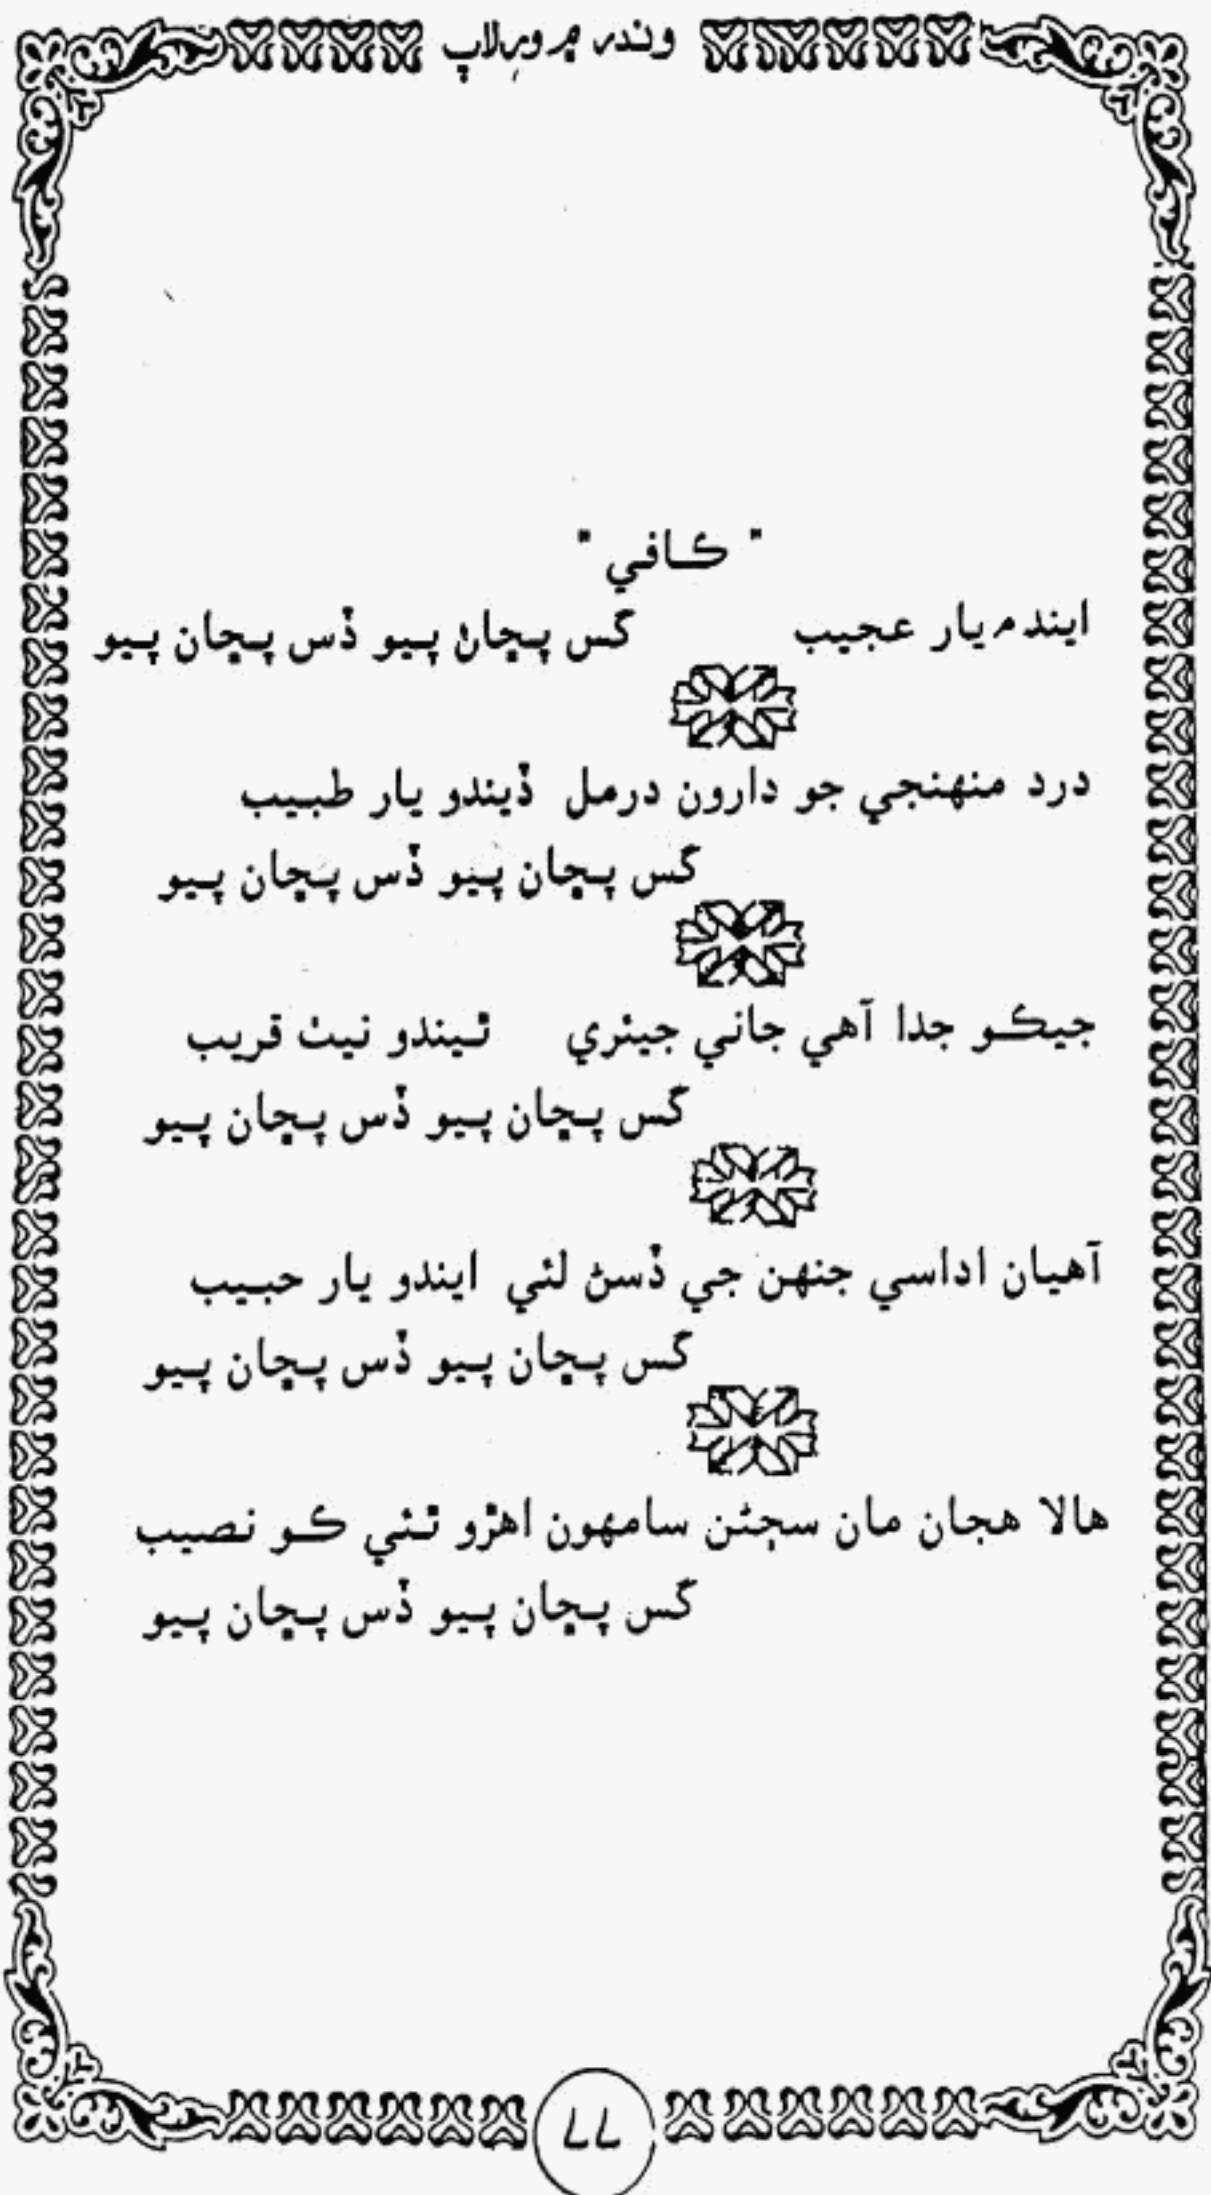 وندر ۾ ورلاپ
" ڪافي "
ايندم يار عجيب گس پڇان پيو ڏس پڇان پيو
درد منهنجي جو دارون درمل ڏيندو يار طبيب
گس پڇان پيو ڏس پڇان پيو
جيڪو جدا آهي جاني جيئري ٿيندو نيٺ قريب
گس پڇان پيو ڏس پڇان پيو
آهيان اداسي جنهن جي ڏسڻ لئي ايندو يار حبيب
گس پڇان پيو ڏس پڇان پيو
هالا هجان مان سڄڻن سامهون اهڙو ٿئي ڪو نصيب
گس پڇان پيو ڏس پڇان پيو
۷۷